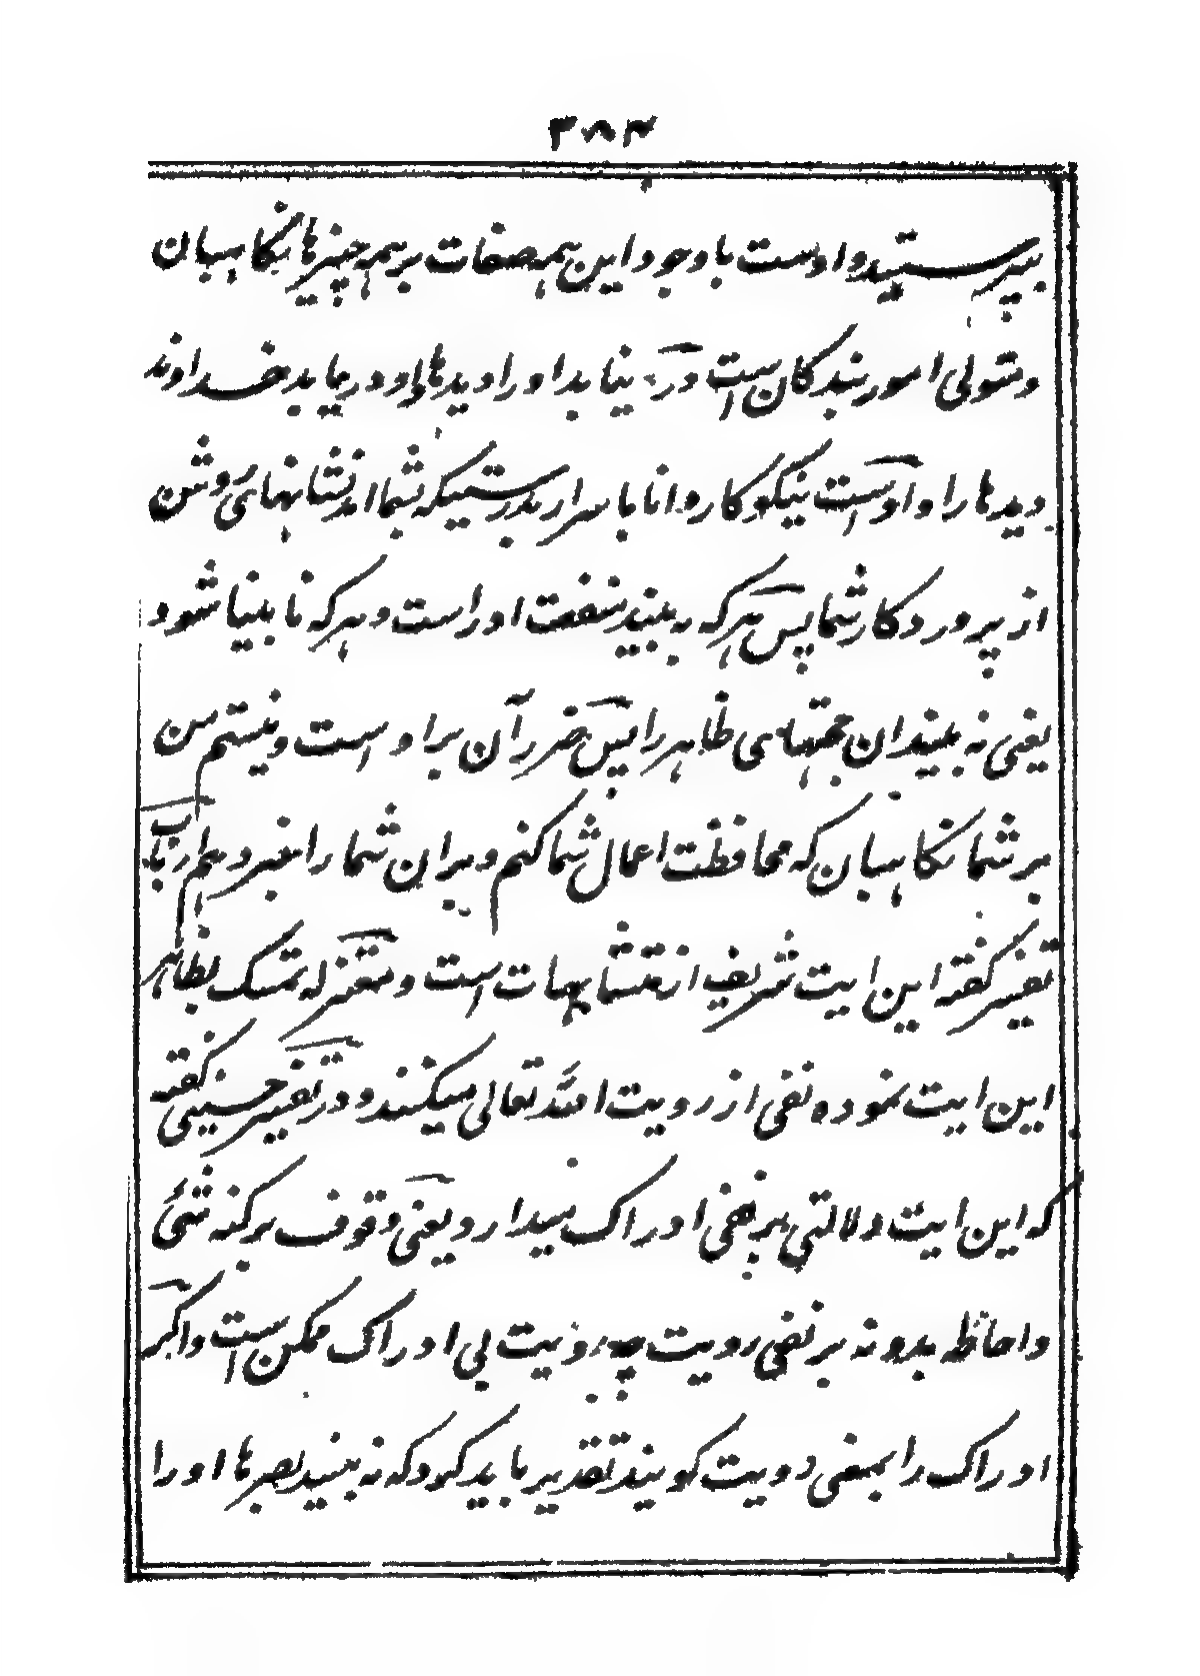 ۳۸۳
بپرستید و اوست با وجود این همه صفات بر همه چیزها نگاهبان
و متولی امور بندگان است در نیابد او را دیدها و او در یابد خداوند
دیدها را و اوست نیکو کار دانا باسرار بدرستیکه بشما آمد نشانهای روشن
از پروردگار شما پس هر که به بیند منفعت او راست و هر که نابینا شود
یعنی نه بیند آن حجتهای ظاهر را پس ضرر آن بر اوست و نیستم من
بر شما نگاهبان که محافظت اعمال شما کنم و بر آن شما را جزا دهم ارباب
تفسیر گفته این ایت شریف از متشابهات است و معتزله تمسک بظاهر
این ایت نموده نفی از رویت الله تعالی میکنند و در تفسیر حسینی گفته
که این ایت دلالتی بر نفی ادراک میدارد یعنی وقوف بر کنه شئ
و احاطه بدو نه بر نفی رویت چه رویت بی ادراک ممکن است و اگر
ادراک را بمعنی رویت گویند تقدیر باید کرد که نه بیند بصرها او را